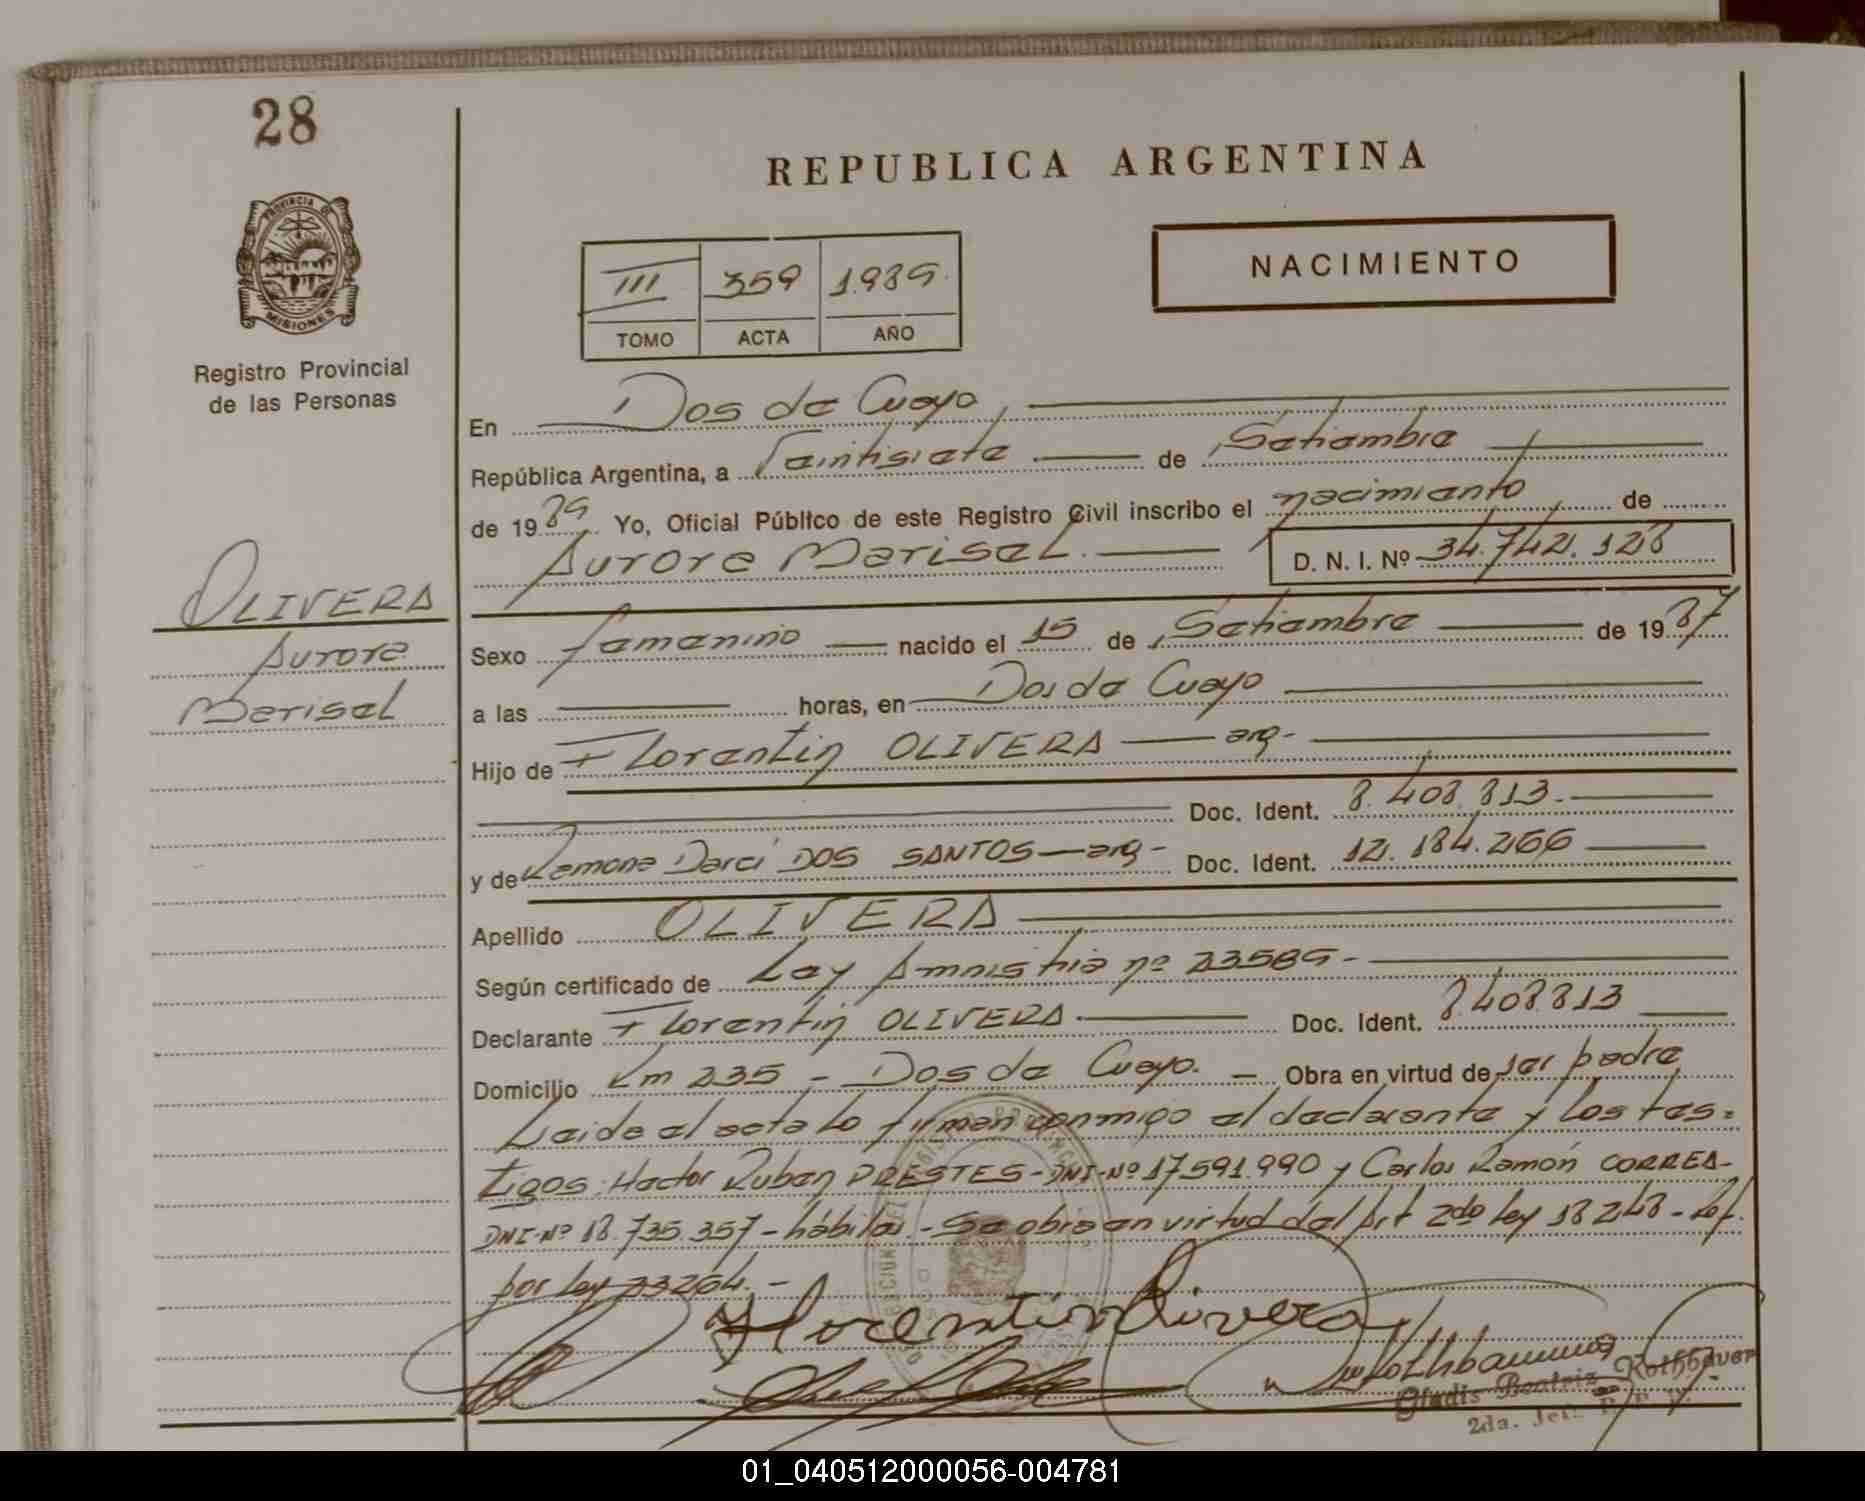 28
REPUBLICA ARGENTINA
NACIMIENTO
III 359 1.989.
TOMO ACTA AÑO
PROVINCIA DE
MISIONES
Registro Provincial
de las Personas
En Dos de Mayo,
República Argentina, a Veintisiete de Setiembre
de 1989 Yo, Oficial Público de este Registro Civil inscribo el nacimiento de
Aurora Marisel. D. N. I. Nº 34.742.128
OLIVERA
Aurora
Marisel
Sexo femenino nacido el 15 de Setiembre de 1987
a las horas, en Dos de Mayo
Hijo de Florentin OLIVERA arg-
Doc. Ident. 8.408.813.-
y de Ramona Darci DOS SANTOS arg- Doc. Ident. 12.184.266
Apellido OLIVERA
Según certificado de Ley Amnistia nº 23585-
Declarante Florentin OLIVERA Doc. Ident. 8.408.813
Domicilio Km 235 - Dos de Mayo. - Obra en virtud de ser padre
Leida el acta lo firman conmigo el declarante y los tes=
tigos: Hector Ruben PRESTES-DNI-Nº 17.591.990 y Carlos Ramón CORREA-
DNI-Nº 18.735.357 - hábiles.- Se obra en virtud del Art 2do ley 18248- Ref.
por ley 23264.-
Florentin Olivera
Gladis Beatriz Rothbauer
2da. Jef.
01_040512000056-004781